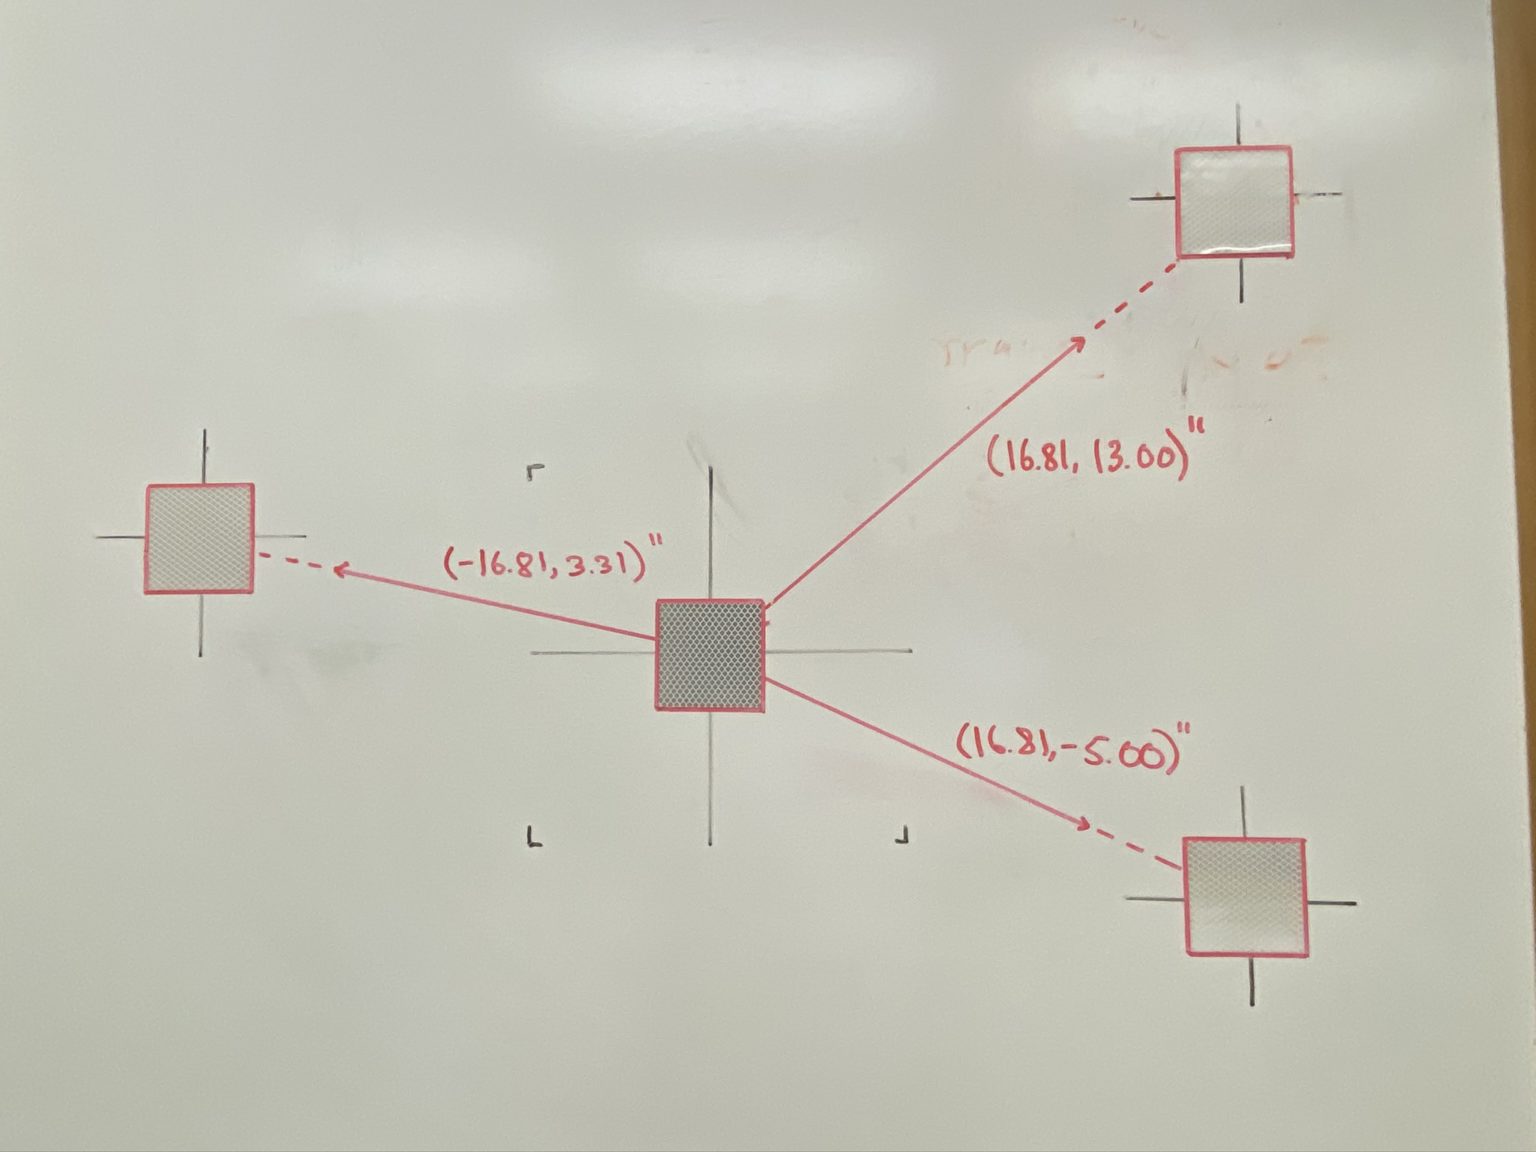 (16.81, 13.00)"
(-16.81, 3.31)"
(16.81, -5.00)"